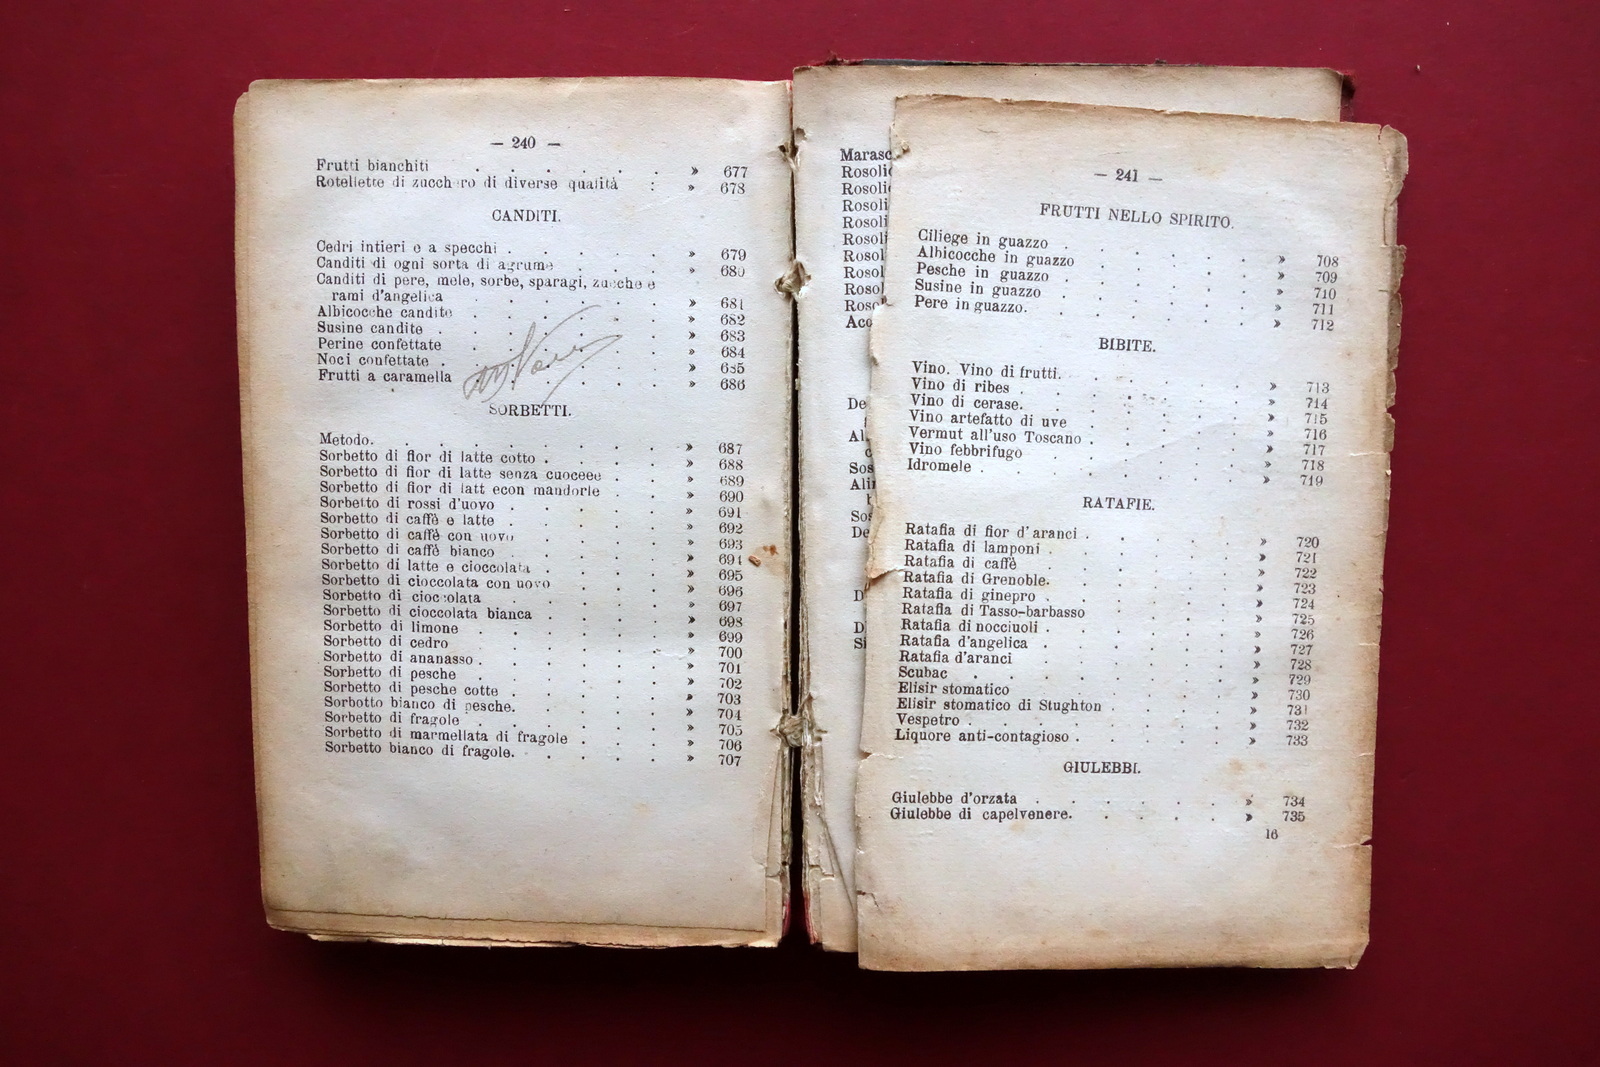 — 240 —
Frutti bianchiti . . . . . . » 677
Rotellette di zucchero di diverse qualità : » 678
CANDITI.
Cedri intieri e a specchi . . . . . » 679
Canditi di ogni sorta di agrume . . . » 680
Canditi di pere, mele, sorbe, sparagi, zucche e
rami d'angelica . . . . . . » 681
Albicocche candite . . . . . . » 682
Susine candite . . . . . . . » 683
Perine confettate . . . . . . » 684
Noci confettate . . . . . . . » 685
Frutti a caramella . . . . . . » 686
SORBETTI.
Metodo. . . . . . . . . » 687
Sorbetto di fior di latte cotto . . . . » 688
Sorbetto di fior di latte senza cuocere . . » 689
Sorbetto di fior di latt econ mandorle . . » 690
Sorbetto di rossi d'uovo . . . . . » 691
Sorbetto di caffè e latte . . . . . » 692
Sorbetto di caffè con uovo . . . . » 693
Sorbetto di caffè bianco . . . . . » 694
Sorbetto di latte e cioccolata . . . . » 695
Sorbetto di cioccolata con uovo . . . » 696
Sorbetto di cioccolata . . . . . » 697
Sorbetto di cioccolata bianca . . . . » 698
Sorbetto di limone . . . . . . » 699
Sorbetto di cedro . . . . . . » 700
Sorbetto di ananasso . . . . . . » 701
Sorbetto di pesche . . . . . . » 702
Sorbetto di pesche cotte . . . . . » 703
Sorbotto bianco di pesche. . . . . » 704
Sorbetto di fragole . . . . . . » 705
Sorbetto di marmellata di fragole . . . » 706
Sorbetto bianco di fragole. . . . . » 707
Marasc
Rosolio
Rosoli
Rosoli
Rosoli
Rosoli
Rosol
Rosol
Rosol
Roso
Acq
De
Al
Sos
Alin
Sos
De
D
D
Si
— 241 —
FRUTTI NELLO SPIRITO.
Ciliege in guazzo . . . . . . » 708
Albicocche in guazzo . . . . . » 709
Pesche in guazzo . . . . . . » 710
Susine in guazzo . . . . . . » 711
Pere in guazzo. . . . . . . » 712
BIBITE.
Vino. Vino di frutti. . . . . . » 713
Vino di ribes . . . . . . . » 714
Vino di cerase. . . . . . . » 715
Vino artefatto di uve . . . . . » 716
Vermut all'uso Toscano . . . . . » 717
Vino febbrifugo . . . . . . » 718
Idromele . . . . . . . . » 719
RATAFIE.
Ratafia di fior d'aranci . . . . . » 720
Ratafia di lamponi . . . . . . » 721
Ratafia di caffè . . . . . . » 722
Ratafia di Grenoble. . . . . . » 723
Ratafia di ginepro . . . . . . » 724
Ratafia di Tasso-barbasso . . . . » 725
Ratafia di nocciuoli . . . . . . » 726
Ratafia d'angelica . . . . . . » 727
Ratafia d'aranci . . . . . . » 728
Scubac . . . . . . . . » 729
Elisir stomatico . . . . . . » 730
Elisir stomatico di Stughton . . . . » 731
Vespetro . . . . . . . . » 732
Liquore anti-contagioso . . . . . » 733
GIULEBBI.
Giulebbe d'orzata . . . . . . » 734
Giulebbe di capelvenere. . . . . » 735
16